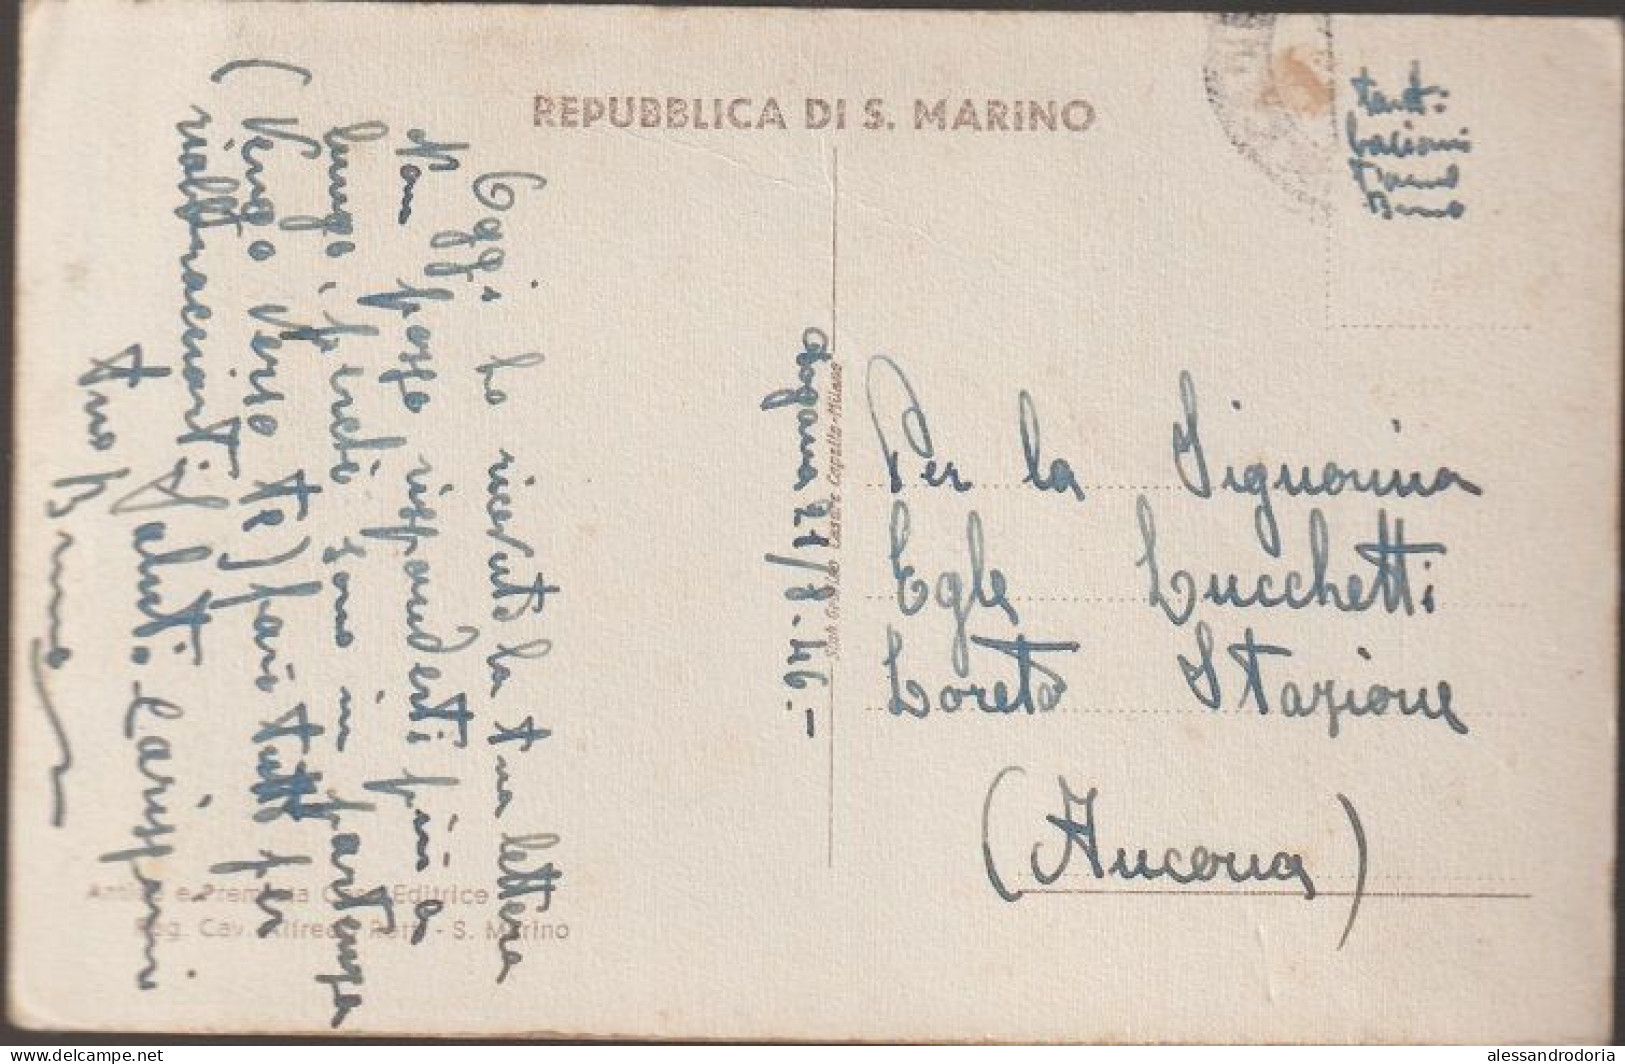 REPUBBLICA DI S. MARINO
Oggi ho ricevuto la tua lettera
Non posso risponderti fin a
lungo, perchè sono in partenza
(Vengo verso te) fare tutto per
riabbracciarti. Saluti Carissimi
tuo Bruno
Dogana 21/8.46.-
tanti
bacioni
Bruno
Per la Signorina
Egle Lucchetti
Loreto Stazione
(Ancona)
Antica e Premiata Casa Editrice
Rag. Cav. Alfredo Reffi - S. Marino
Capello-Milano
delcampe.net
alessandrodoria